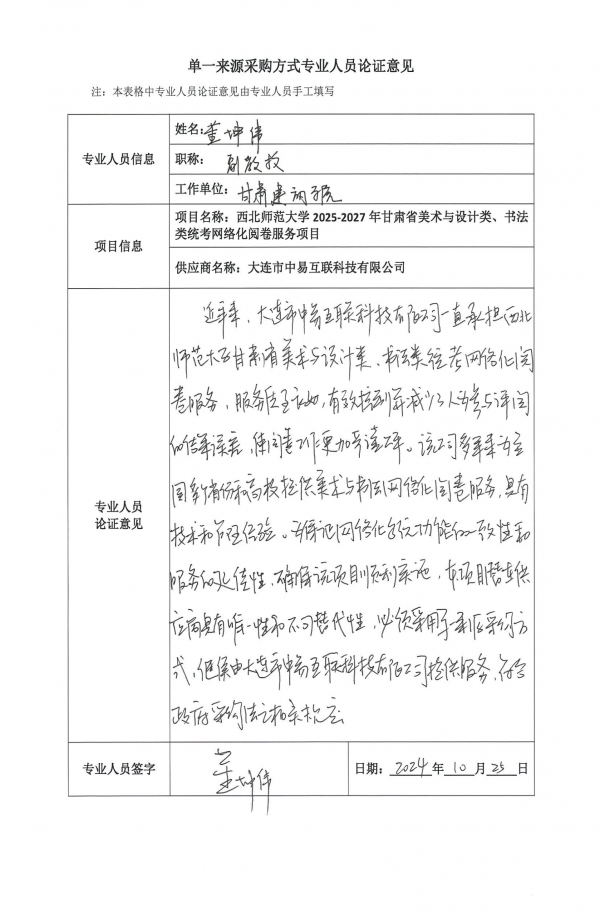 单一来源采购方式专业人员论证意见
注：本表格中专业人员论证意见由专业人员手工填写
专业人员信息
姓名：董坤伟
职称：副教授
工作单位：甘肃建筑学院
项目信息
项目名称：西北师范大学 2025-2027 年甘肃省美术与设计类、书法
类统考网络化阅卷服务项目
供应商名称：大连市中易互联科技有限公司
专业人员
论证意见
近年来，大连市中易互联科技有限公司一直承担西北
师范大学甘肃省美术与设计类、书法类统考网络化阅
卷服务，服务质量良好，有效控制并减少了人为参与评阅
的结果误差，使阅卷工作更加严谨公平。该公司多年来为全
国多个省份和高校提供美术与书法网络化阅卷服务，具有
技术和管理经验。为保证网络化系统功能的一致性和
服务的延续性，确保该项目顺利实施，本项目供
应商具有唯一性和不可替代性，必须采用单一来源采购方
式，继续由大连市中易互联科技有限公司提供服务，符合
政府采购法之相关规定
专业人员签字
董坤伟
日期：2024 年 10 月 25 日